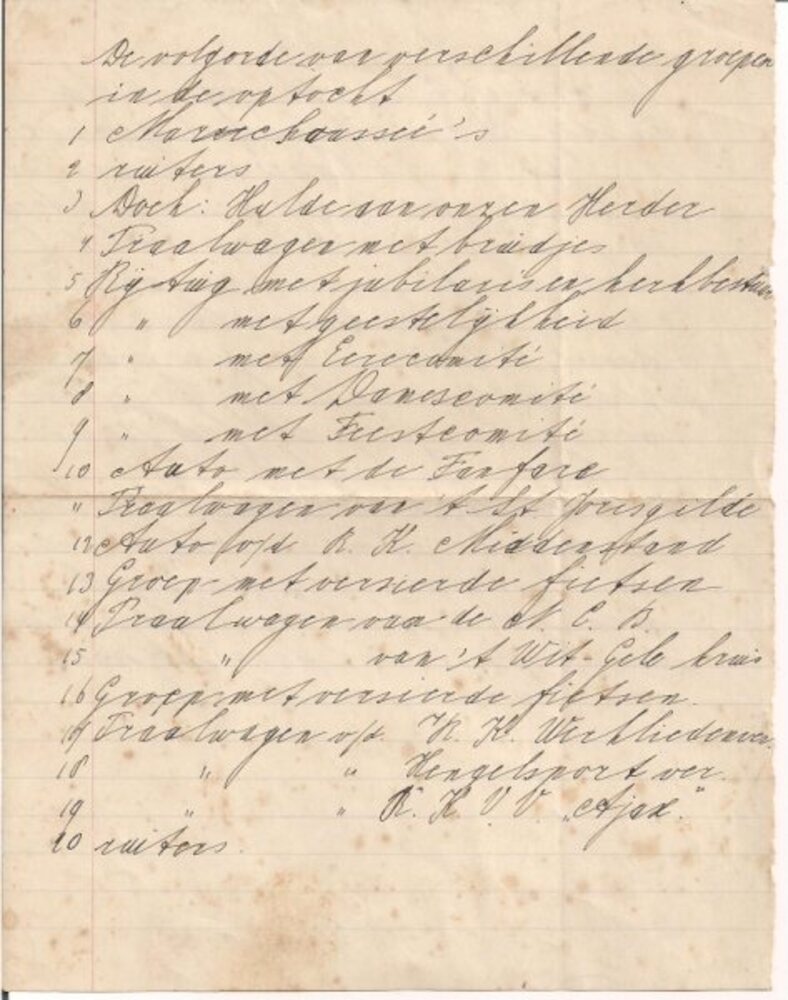 De volgorde van verschillende groepen
in de optocht
1 Marechaussee's
2 ruiters
3 Doek: Hulde aan onzen Herder
4 Praalwagen met bruidjes
5 Rijtuig met jubilaris en kerkbestuur
6 " met geestelijkheid
7 " met Eerecomité
8 " met Damescomité
9 " met Feestcomité
10 Auto met de Fanfare
11 Praalwagen van 't St. Jorisgilde
12 Auto v/d R. K. Middenstand
13 Groep met versierde fietsen
14 Praalwagen van de N. C. B.
15 " van 't Wit-Gele kruis
16 Groep met versierde fietsen.
17 Praalwagen v/d. R. K. Werkliedenver.
18 " " Hengelsport ver.
19 " " R. K. V. V. "Ajax."
20 ruiters.